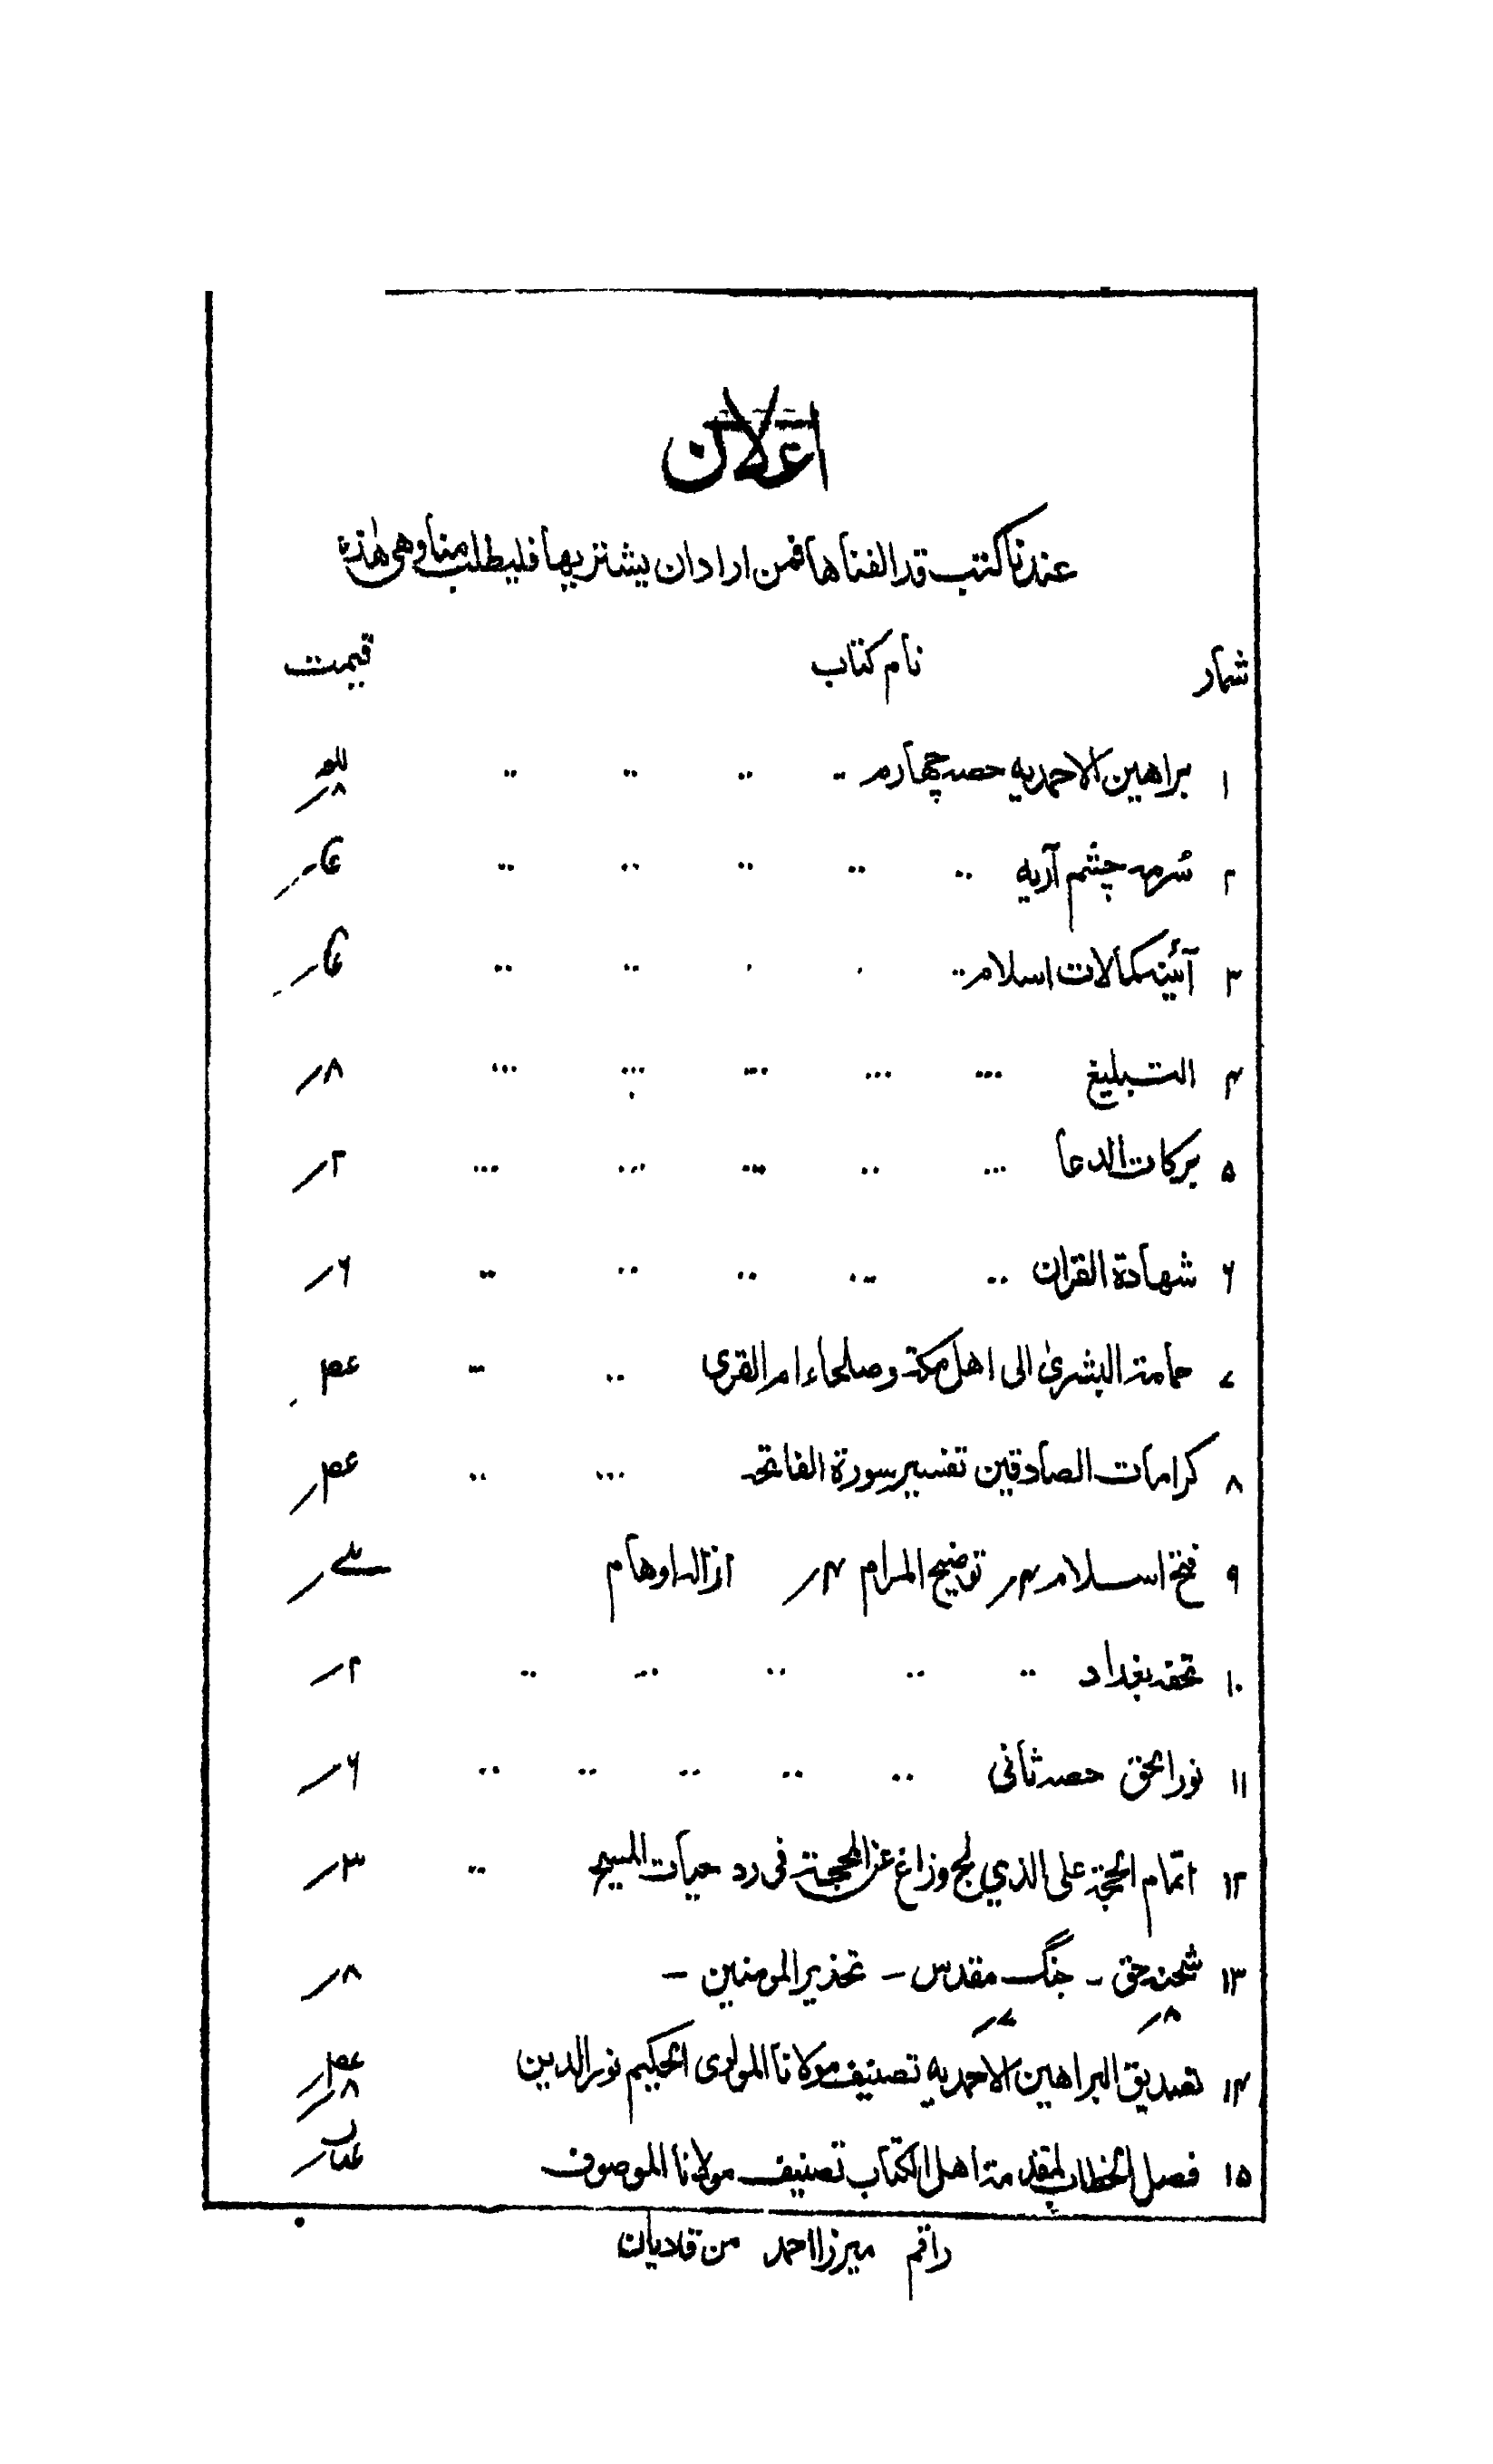 اعلان
عندنا كتب قد الفناها فمن اراد ان يشتريها فليطلب منا وهى هٰذه
شمار نام كتاب قيمت
۱ براهين الاحمديه حصہ چهارم ۸؍
۲ سُرمہ چشم آريه
۳ آئينہ كمالات اسلام
۴ التبليغ ۸؍
۵ بركات الدعا ۲؍
۶ شهادة القران ۶؍
۷ حمامة البشرىٰ الى اهل مكة وصلحاء ام القرى
۸ كرامات الصادقين تفسير سورة الفاتحه
۹ فتح اسلام ۴؍ توضيح المرام ۴؍ ازالہ اوهام
۱۰ تحفہ بغداد ۲؍
۱۱ نور الحق حصہ ثانى ۶؍
۱۲ اتمام الحجّة على الذي لج وزاغ عن المحجة فى رد حيات المسيح ۳؍
۱۳ شحنہ حق ـ جنگ مقدس ـ تحذير المومنين ـ ۸؍
۸؍ ۷؍
۱۴ تصديق البراهين الاحمديه تصنيف مولانا المولوى الحكيم نور الدين ۸؍
۱۵ فصل الخطاب لمقدمة اهل الكتاب تصنيف مولانا الموصوف
راقم ميرزا احمد من قاديان